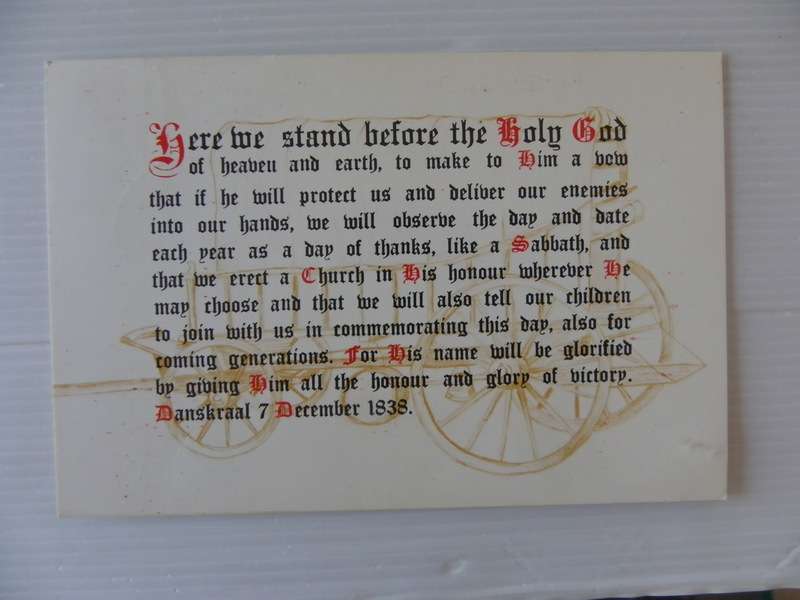 Here we stand before the Holy God
of heaven and earth, to make to Him a vow
that if he will protect us and deliver our enemies
into our hands, we will observe the day and date
each year as a day of thanks, like a Sabbath, and
that we erect a Church in His honour wherever He
may choose and that we will also tell our children
to join with us in commemorating this day, also for
coming generations. For His name will be glorified
by giving Him all the honour and glory of victory.
Danskraal 7 December 1838.